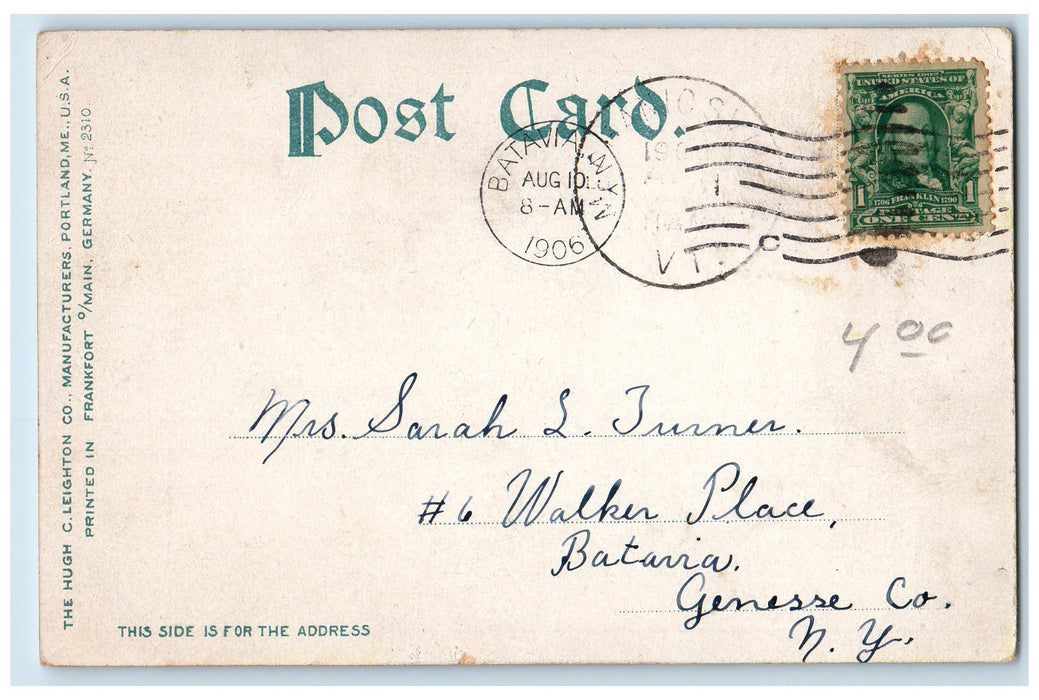 THE HUGH C. LEIGHTON CO., MANUFACTURERS, PORTLAND, ME., U.S.A.
PRINTED IN FRANKFORT O/MAIN, GERMANY. No 2310
Post Card.
BATAVIA, N.Y.
AUG 10
8-AM
1906
190
1
VT.
SERIES 1902
UNITED STATES OF
AMERICA
1 1706 FRANKLIN 1790 1
POSTAGE
ONE CENT
4 00
Mrs. Sarah L. Turner.
#6 Walker Place,
Batavia.
Genesse Co.
N. Y.
THIS SIDE IS FOR THE ADDRESS